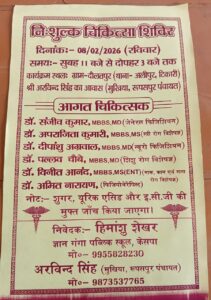 निःशुल्क चिकित्सा शिविर
दिनांकः- 08/02/2026 (रविवार)
समयः- सुबह 11 बजे से दोपहर 3 बजे तक
कार्यक्रम स्थलः- ग्राम-दौलतपुर (थाना-अलीपुर, टिकारी)
श्री अरविन्द सिंह का आवास (मुखिया, रूपसपुर पंचायत)
आगत चिकित्सक
डॉ. संजीव कुमार, MBBS,MD (जेनेरल फिजिशियन)
डॉ. अपराजिता कुमारी, MBBS,MS (स्त्री रोग विशेषज्ञ)
डॉ. दीपांशु अग्रवाल, MBBS,MD (न्यूरो फिजिशियन)
डॉ. पल्लव चौबे, MBBS,MD (शिशु रोग विशेषज्ञ)
डॉ. विनीत आनंद, MBBS,MS(ENT) (नाक, कान एवं गला रोग विशेषज्ञ)
डॉ. अमित नारायण, (फिजियोथेरेपिस्ट)
नोटः- शुगर, यूरिक एसिड और इ.सी.जी की
मुफ्त जाँच किया जाएगा।
निवेदकः- हिमांशु शेखर
ज्ञान गंगा पब्लिक स्कूल, केसपा
मो०- 9955828230
अरविन्द सिंह (मुखिया, रूपसपुर पंचायत)
मो०- 9873537765